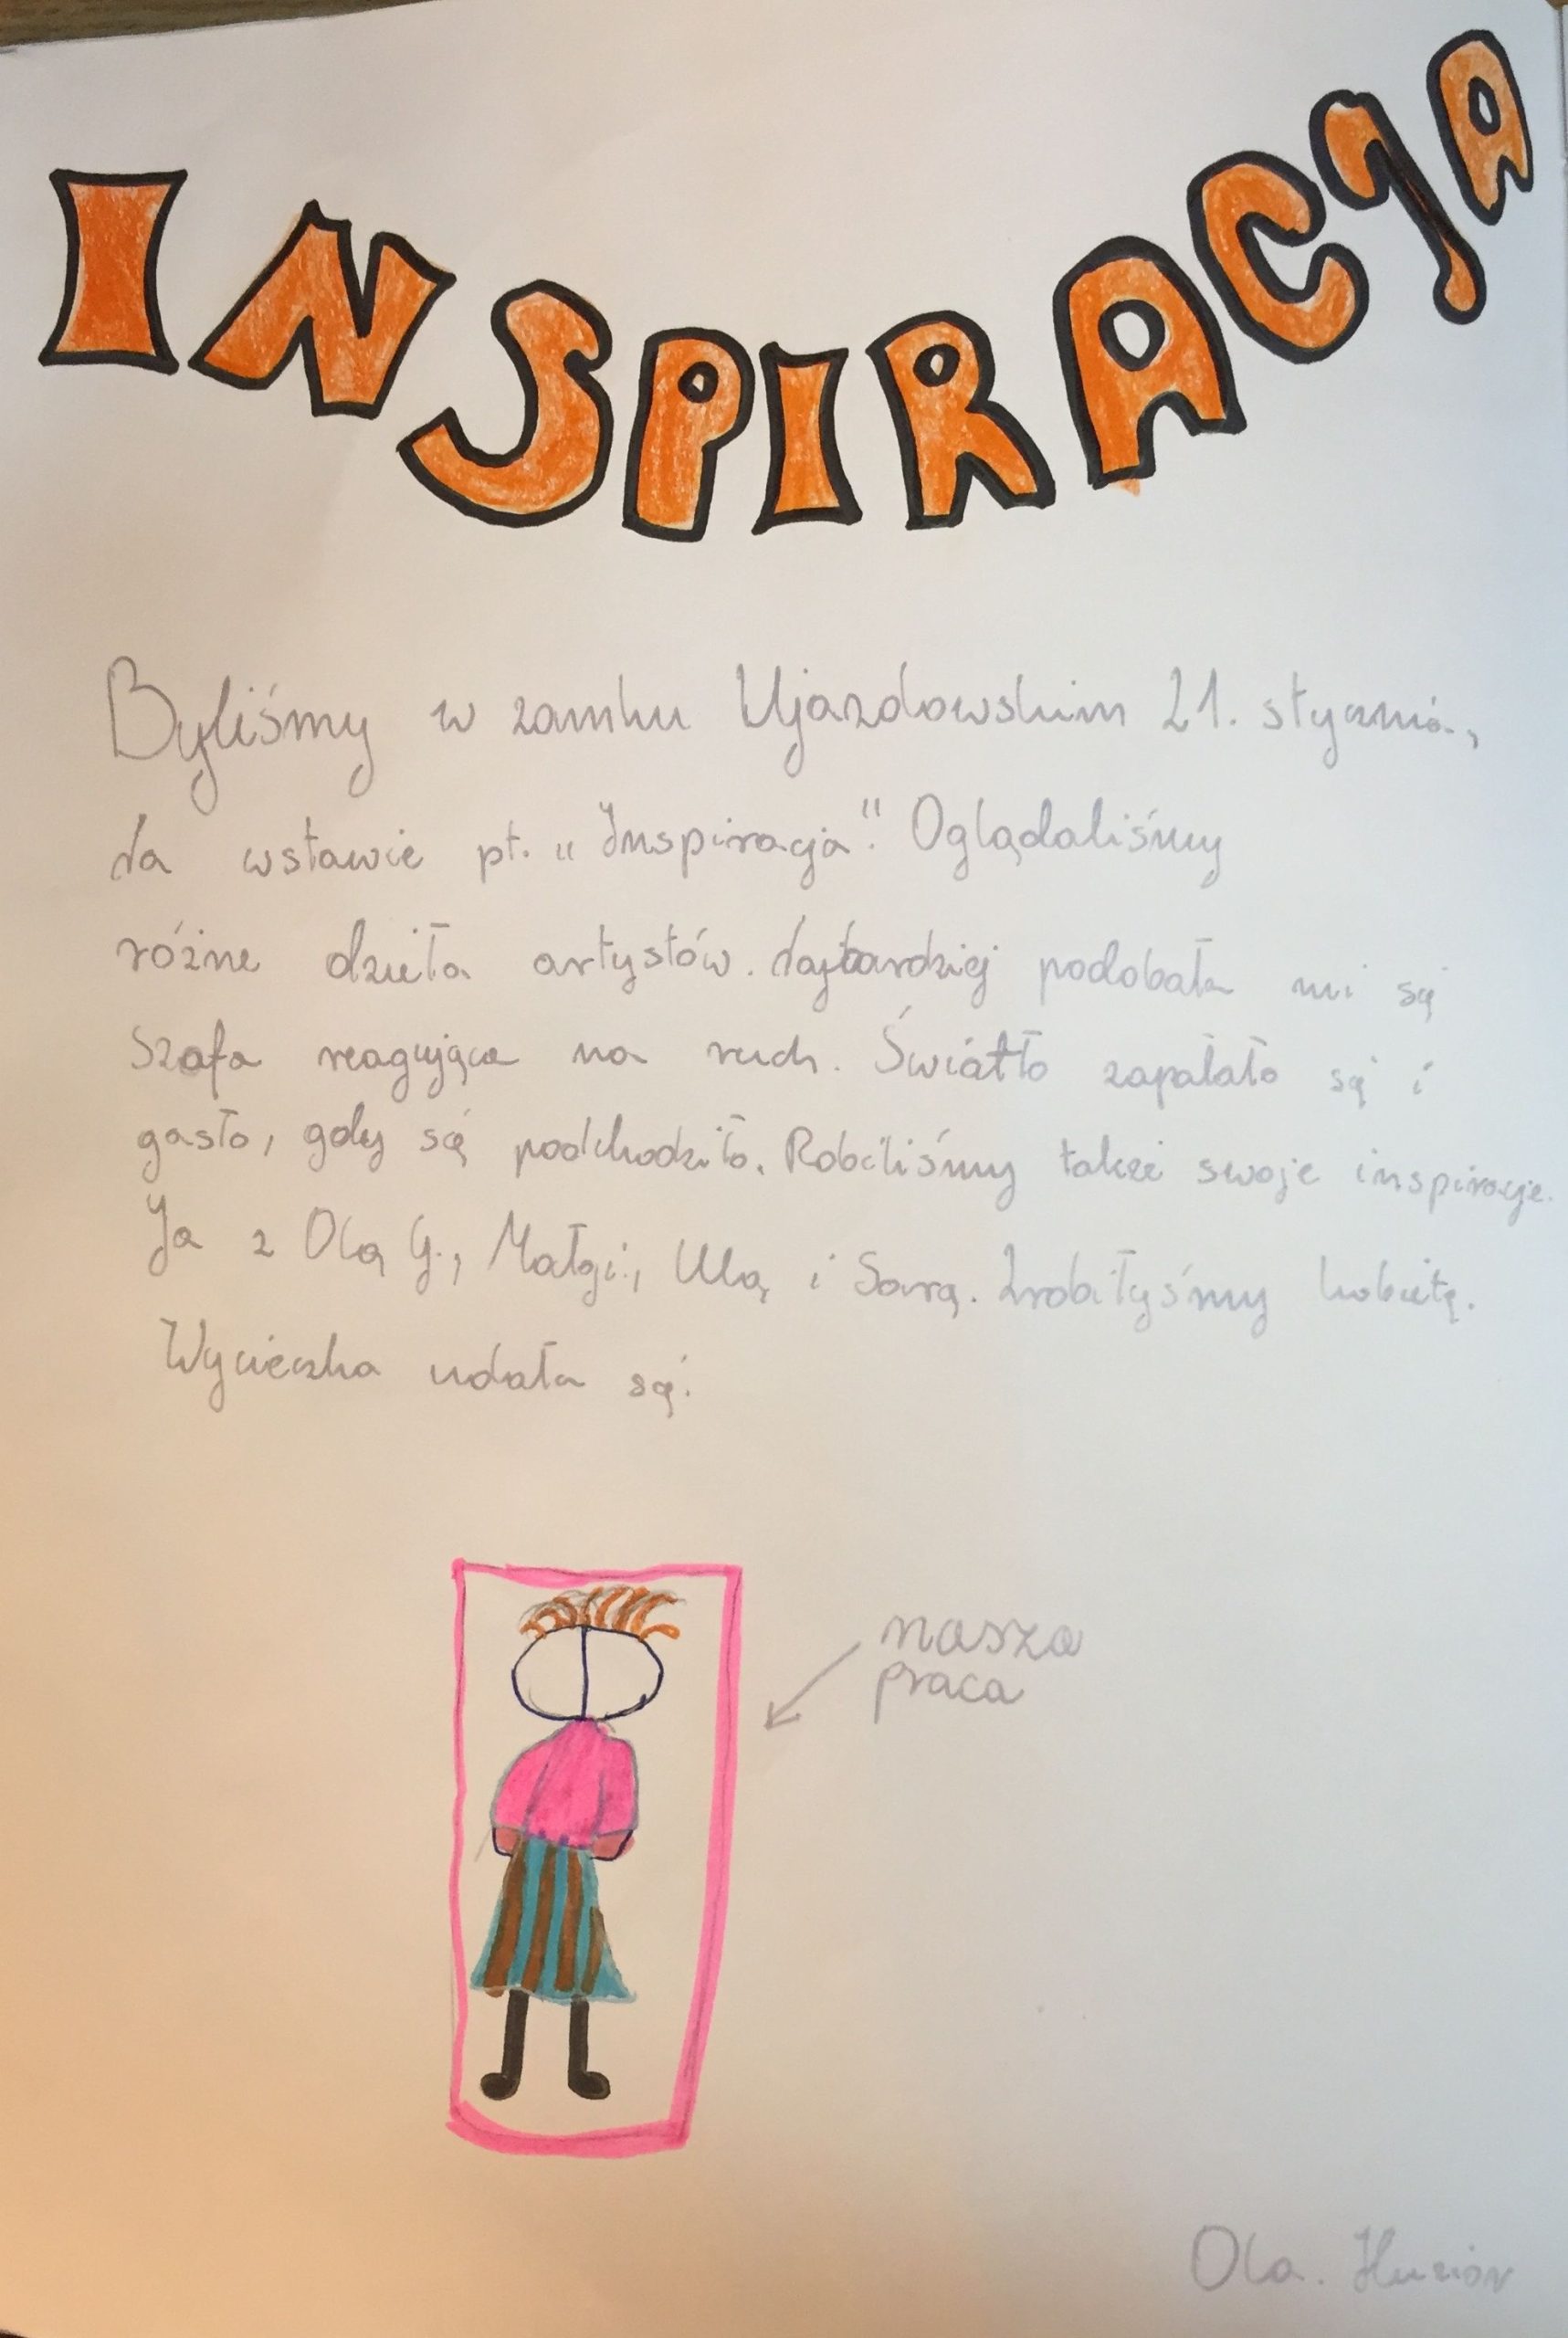 INSPIRACJA
Byliśmy w zamku Ujazdowskim 21. stycznia,
na wstawie pt. „Inspiracja". Oglądaliśmy
różne dzieła artystów. Najbardziej podobała mi są
szafa reagująca na ruch. Światło zapalało są i
gasło, gdy są podchodziło. Robiliśmy także swoje inspiracje.
Ja z Olą G., Małgi., Ulą i Sarą. Zrobiłyśmy kobietę.
Wycieczka udała są.
nasza
praca
Ola.